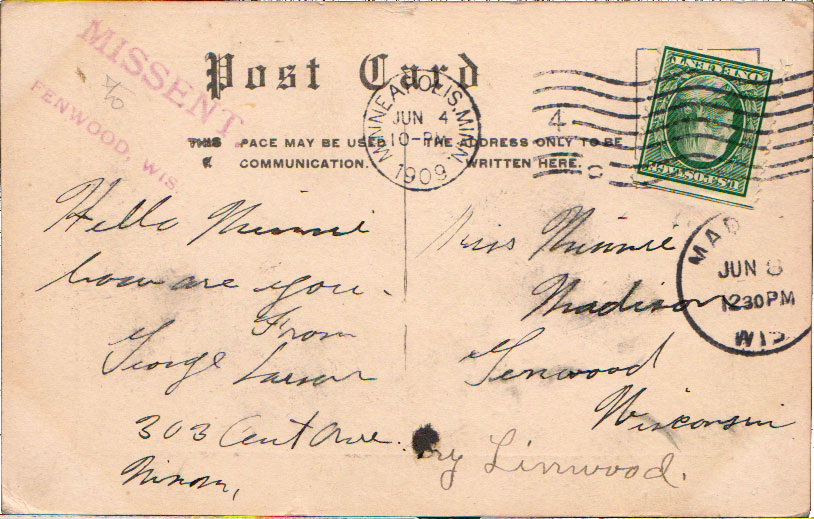 MISSENT.
FENWOOD, WIS.
Post Card
THIS PACE MAY BE USED
COMMUNICATION.
THE ADDRESS ONLY TO BE
WRITTEN HERE.
MINNEAPOLIS, MINN.
JUN 4
10-PM
1909
4
U.S. POSTAGE
MAD
JUN 8
1230PM
WIS
Hello Minnie
how are you.
From
George Larson
303 Cent Ave.
Miss Minnie
Madison
Fenwood
Wisconsin
Try Linwood.